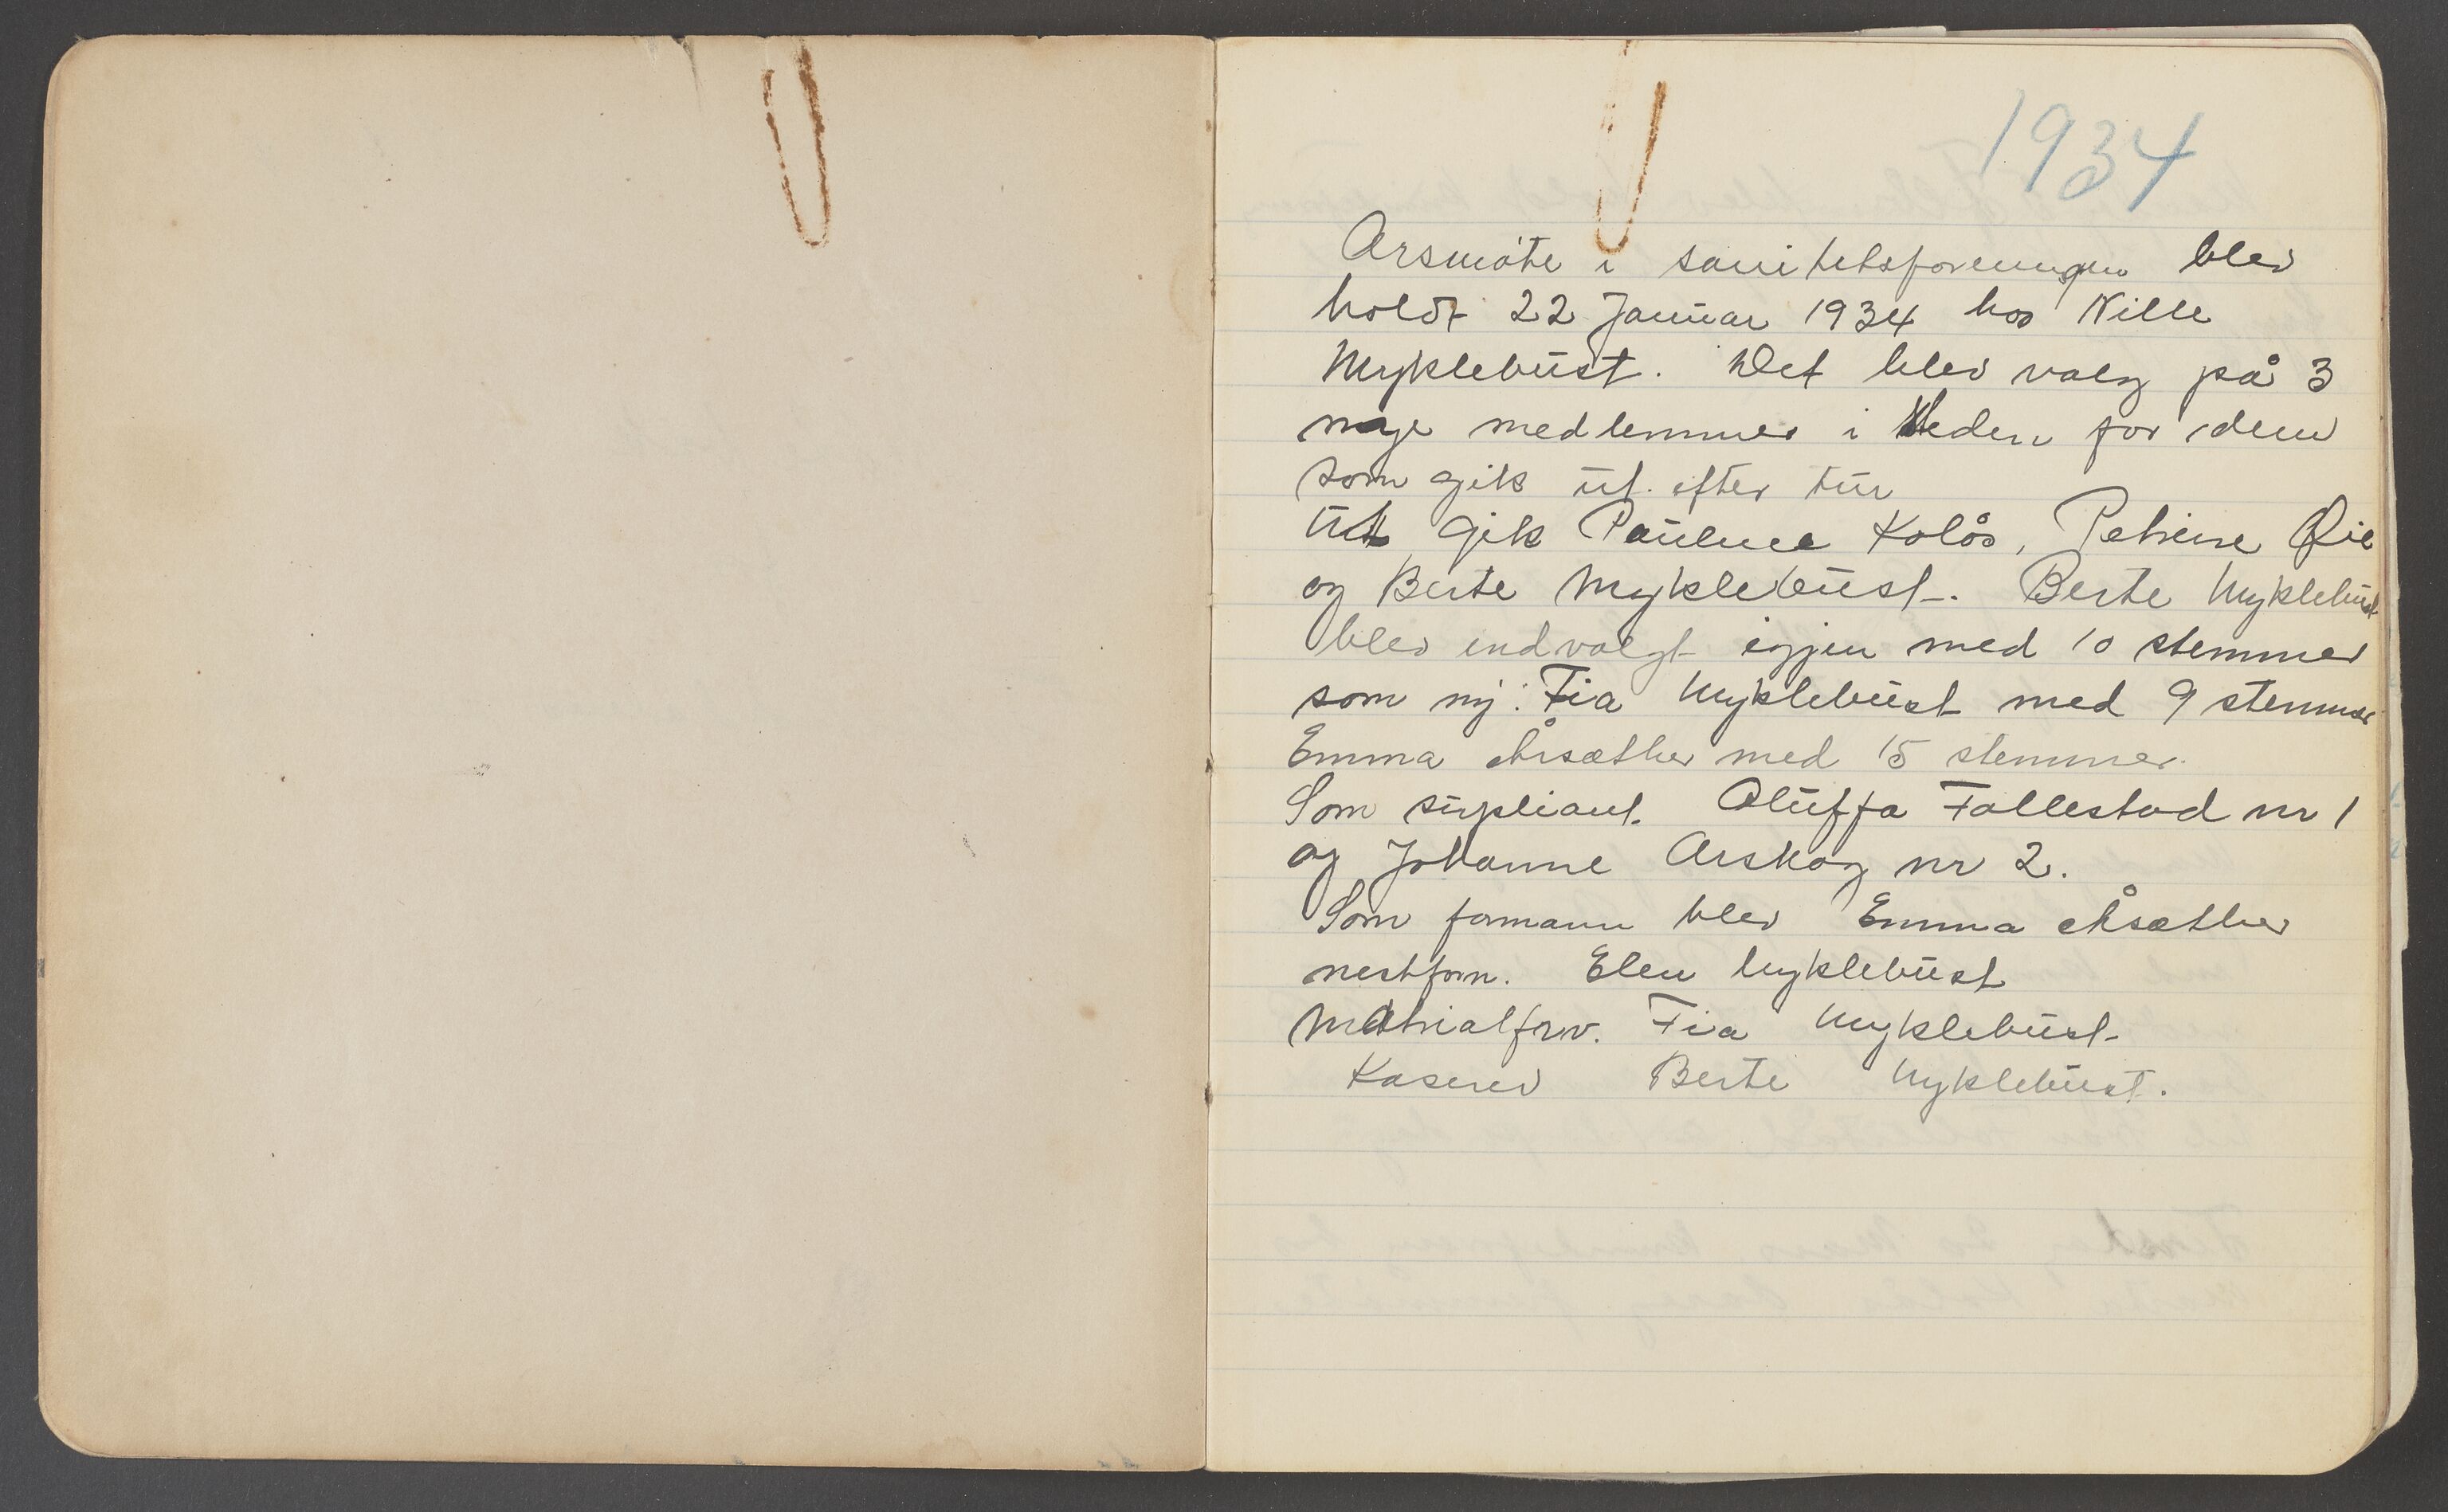 1934
Arsmöte i sanitetsforeningen blev
holdt 22 Januar 1934 hos Nille
Myklebust. Det blev valg på 3
nye medlemmer i for dem
som gik ut efter tur
Ut gik Pauline Kolås, Petrine Øie
og Berte Myklebust. Berte Myklebust
blev indvalgt igjen med 10 stemmer
som ny: Fia Myklebust med 9 stemmer
Emma Åsæther med 15 stemmer.
Som supliant. Oluffa Follestad nr 1
og Johanne Arskog nr 2.
Som formann blev Emma Åsæther
nestform. Elen Myklebust
Matrialforv. Fia Myklebust.
Kaserer Berte Myklebust.